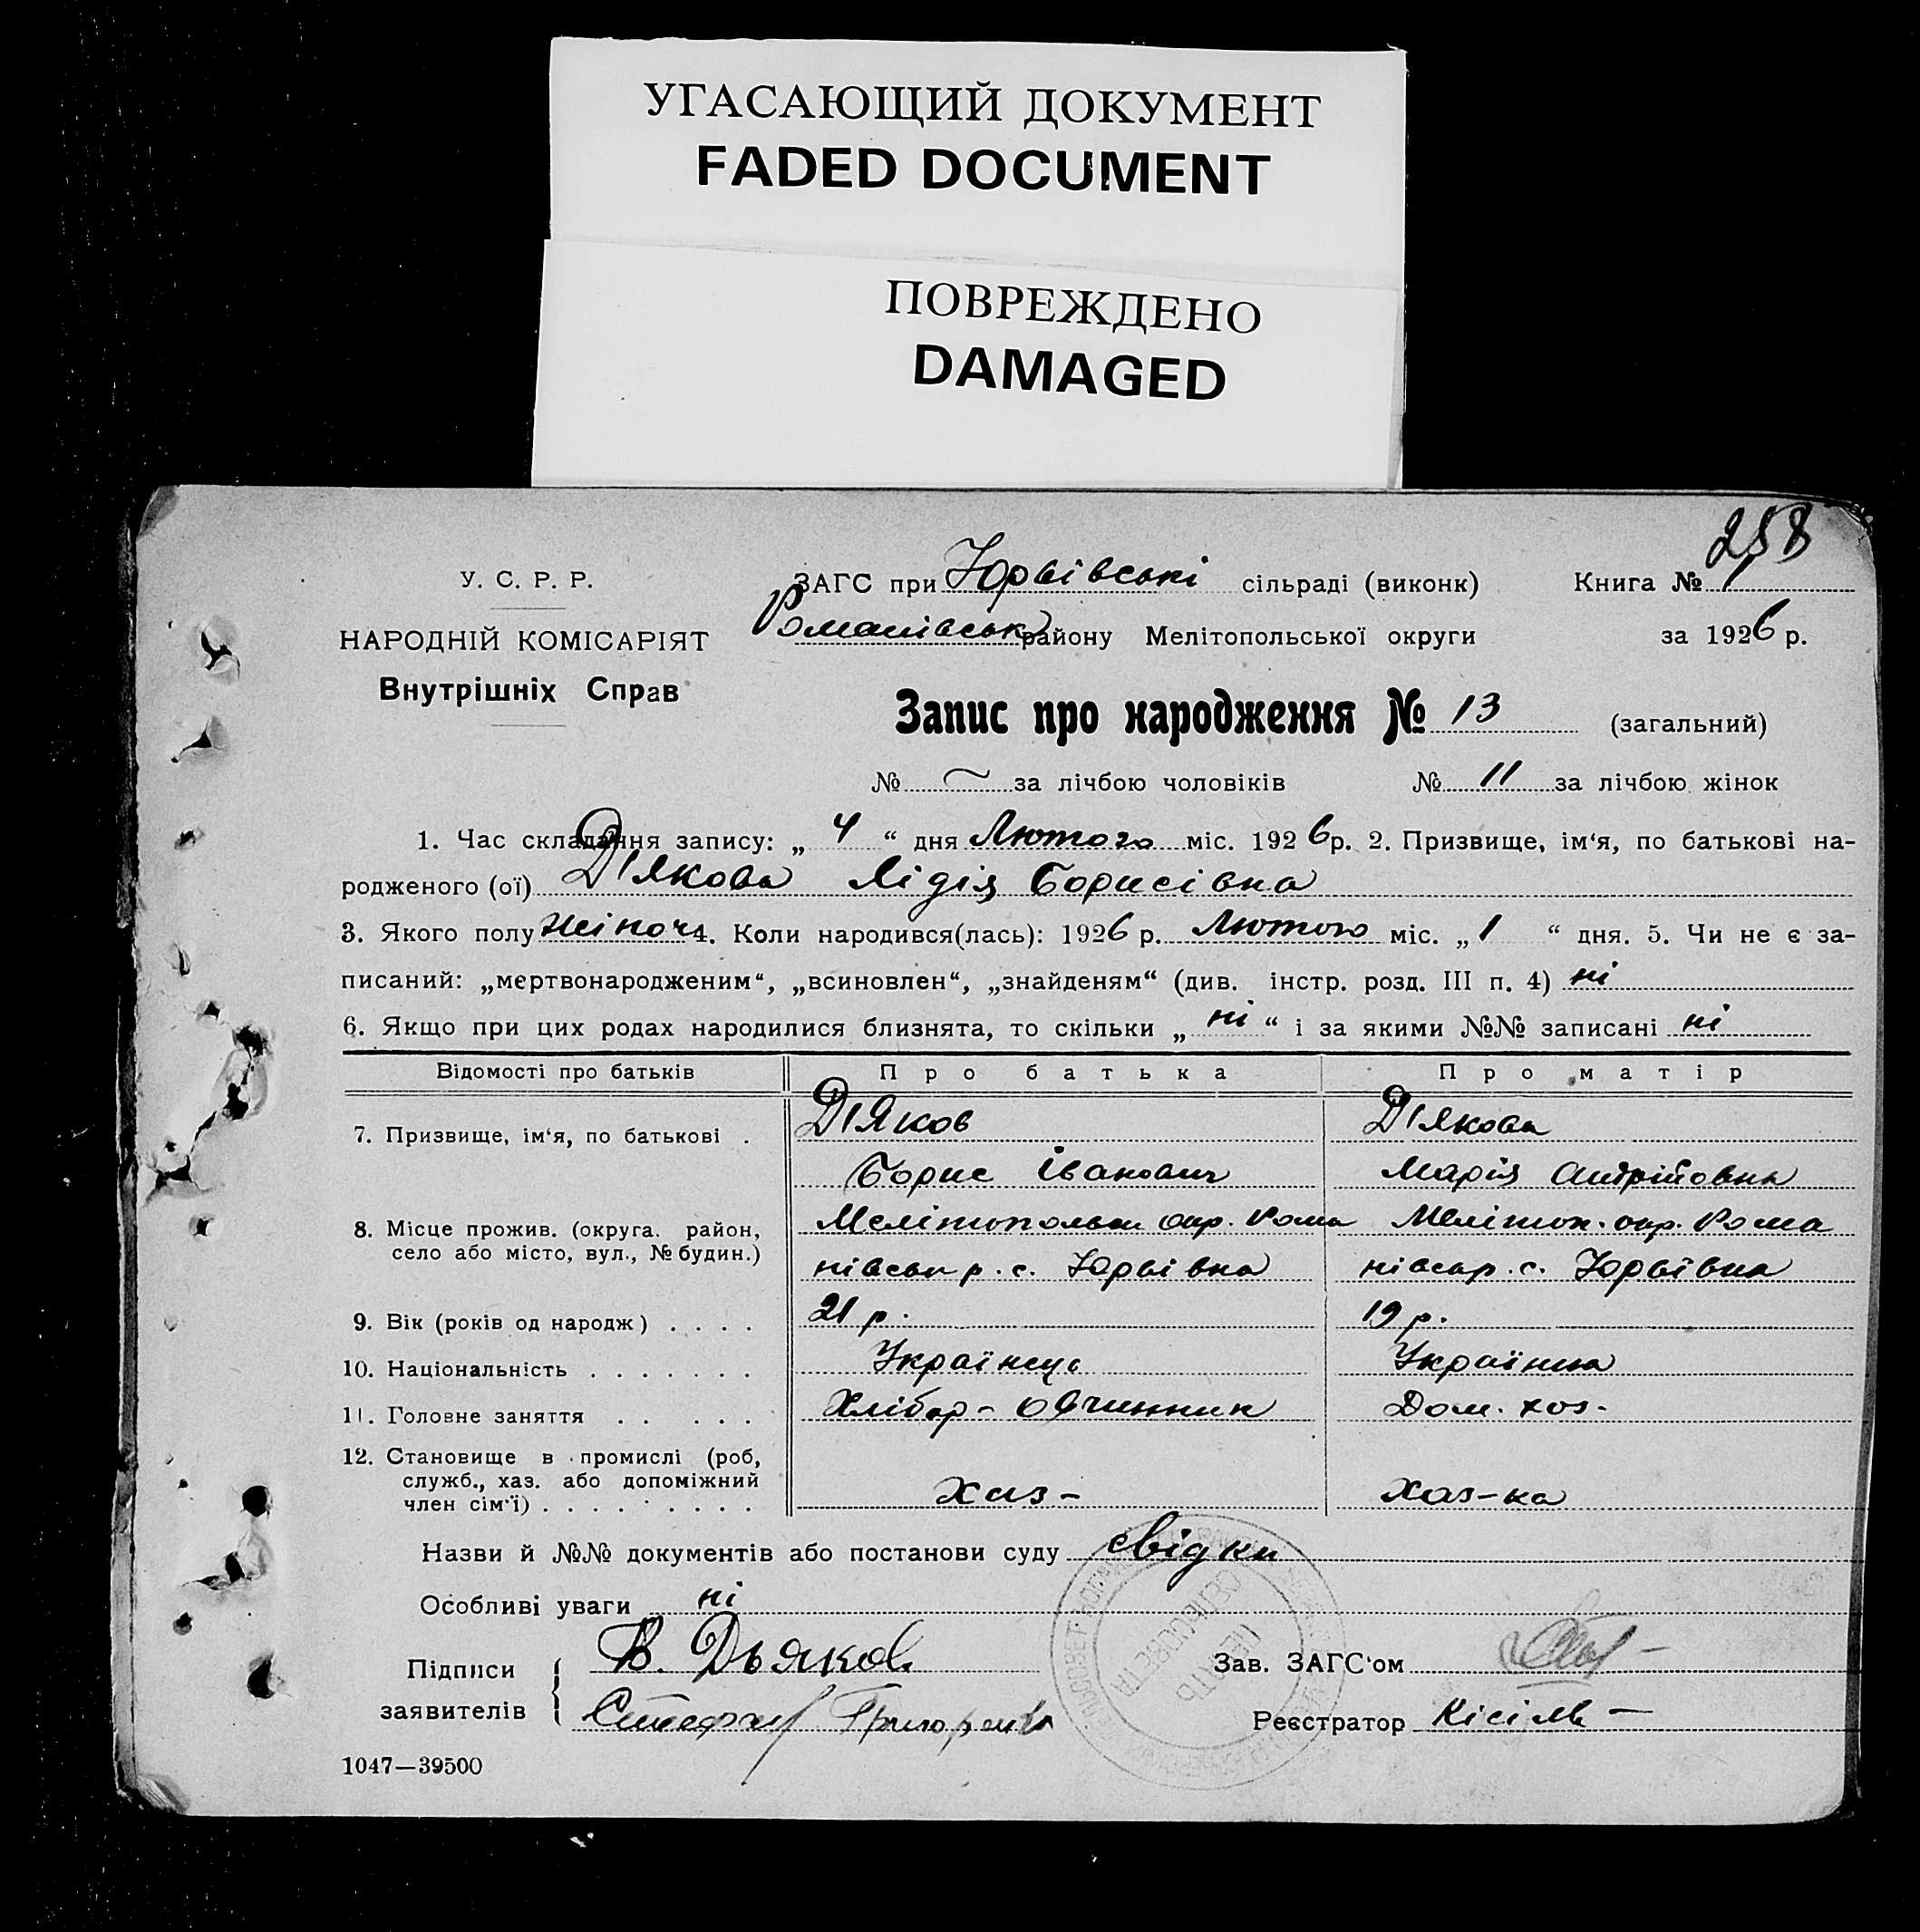 УГАСАЮЩИЙ ДОКУМЕНТ
FADED DOCUMENT
ПОВРЕЖДЕНО
DAMAGED
258
У. С. Р. Р.
НАРОДНІЙ КОМІСАРІЯТ
Внутрішніх Справ
ЗАГС при Юрьівські сільраді (виконк) Книга № 1
Романівськ району Мелітопольської округи за 1926 р.
Запис про народження № 13 (загальний)
№ — за лічбою чоловіків № 11 за лічбою жінок
1. Час складання запису: „ 4 “ дня Лютого міс. 1926 р. 2. Призвище, ім‘я, по батькові на-
родженого (ої) Д'якова Лідія Борисівна
3. Якого полу жіноч 4. Коли народився(лась): 1926 р. Лютого міс. „ 1 “ дня. 5. Чи не є за-
писаний: „мертвонародженим“, „всиновлен“, „знайденям“ (див. інстр. розд. III п. 4) ні
6. Якщо при цих родах народилися близнята, то скільки „ ні “ і за якими №№ записані ні
Відомості про батьків Про батька Про матір
7. Призвище, ім‘я, по батькові . Д'яков Д'якова
Борис Іванович Марія Андрійовна
8. Місце прожив. (округа. район, Мелітопольськ окр. Рома Меліт​оп. окр. Рома
село або місто, вул., № будин.) нівськ р. с. Юрьівка нівськ р. с. Юрьівка
9. Вік (років од народж) . . . . 21 р. 19 р.
10. Національність . . . . . . . Українець Українка
11. Головне заняття . . . . . Хлібор- овчинник Дом. хоз-
12. Становище в промислі (роб,
служб., хаз. або допоміжний
член сім‘ї) . . . . . . . . . Хаз- Хаз-ка
Назви й №№ документів або постанови суду свідки
Особливі уваги ні
Підписи В. Дьяков Зав. ЗАГС‘ом
заявителів Григоренко Реєстратор Кісіль
ПЕЧАТЬ
СЕЛЬСОВЕТА
1047—39500